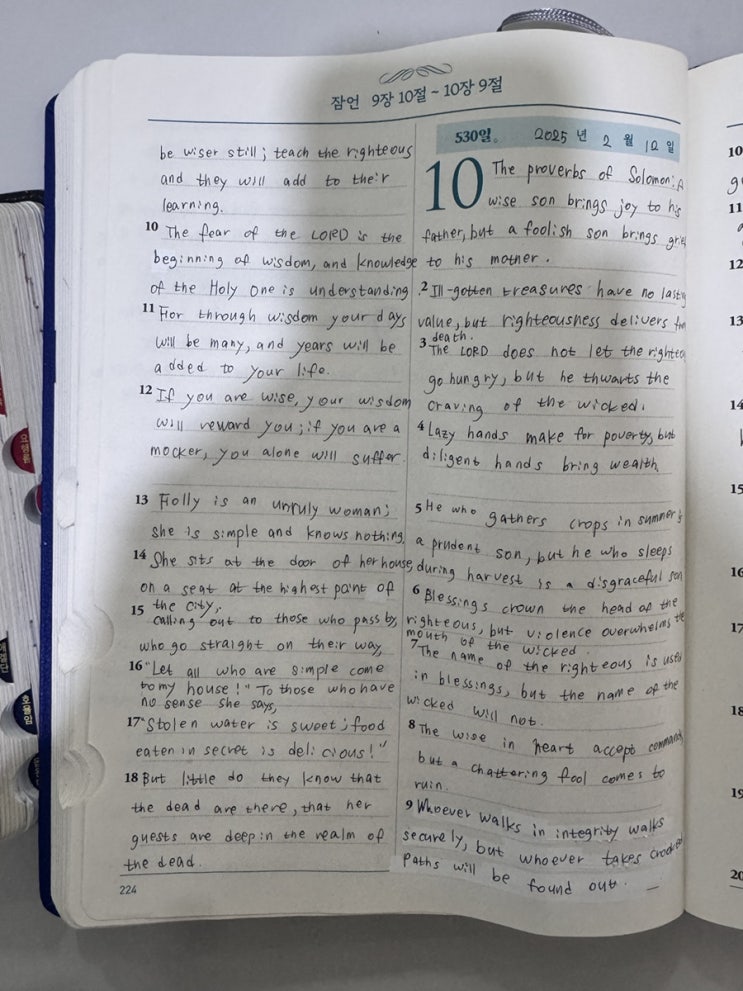 잠언 9장 10절 ~ 10장 9절
be wiser still; teach the righteous
and they will add to their
learning.
10 The fear of the LORD is the
beginning of wisdom, and knowledge
of the Holy One is understanding.
11 For through wisdom your days
will be many, and years will be
added to your life.
12 If you are wise, your wisdom
will reward you; if you are a
mocker, you alone will suffer.
13 Folly is an unruly woman;
she is simple and knows nothing,
14 She sits at the door of her house,
on a seat at the highest point of
the city,
15 calling out to those who pass by,
who go straight on their way,
16 "Let all who are simple come
to my house!" To those who have
no sense she says,
17 "Stolen water is sweet; food
eaten in secret is delicious!"
18 But little do they know that
the dead are there, that her
guests are deep in the realm of
the dead.
224
530일. 2025 년 2 월 12 일
10 The proverbs of Solomon: A
wise son brings joy to his
father, but a foolish son brings grief
to his mother.
2 Ill-gotten treasures have no lasting
value, but righteousness delivers from
death.
3 The LORD does not let the righteous
go hungry, but he thwarts the
craving of the wicked.
4 Lazy hands make for poverty, but
diligent hands bring wealth
5 He who gathers crops in summer is
a prudent son, but he who sleeps
during harvest is a disgraceful son
6 Blessings crown the head of the
righteous, but violence overwhelms the
mouth of the wicked.
7 The name of the righteous is used
in blessings, but the name of the
wicked will not.
8 The wise in heart accept commands,
but a chattering fool comes to
ruin.
9 Whoever walks in integrity walks
securely, but whoever takes crooked
paths will be found out.
10
11
12
13
14
15
16
17
18
19
20